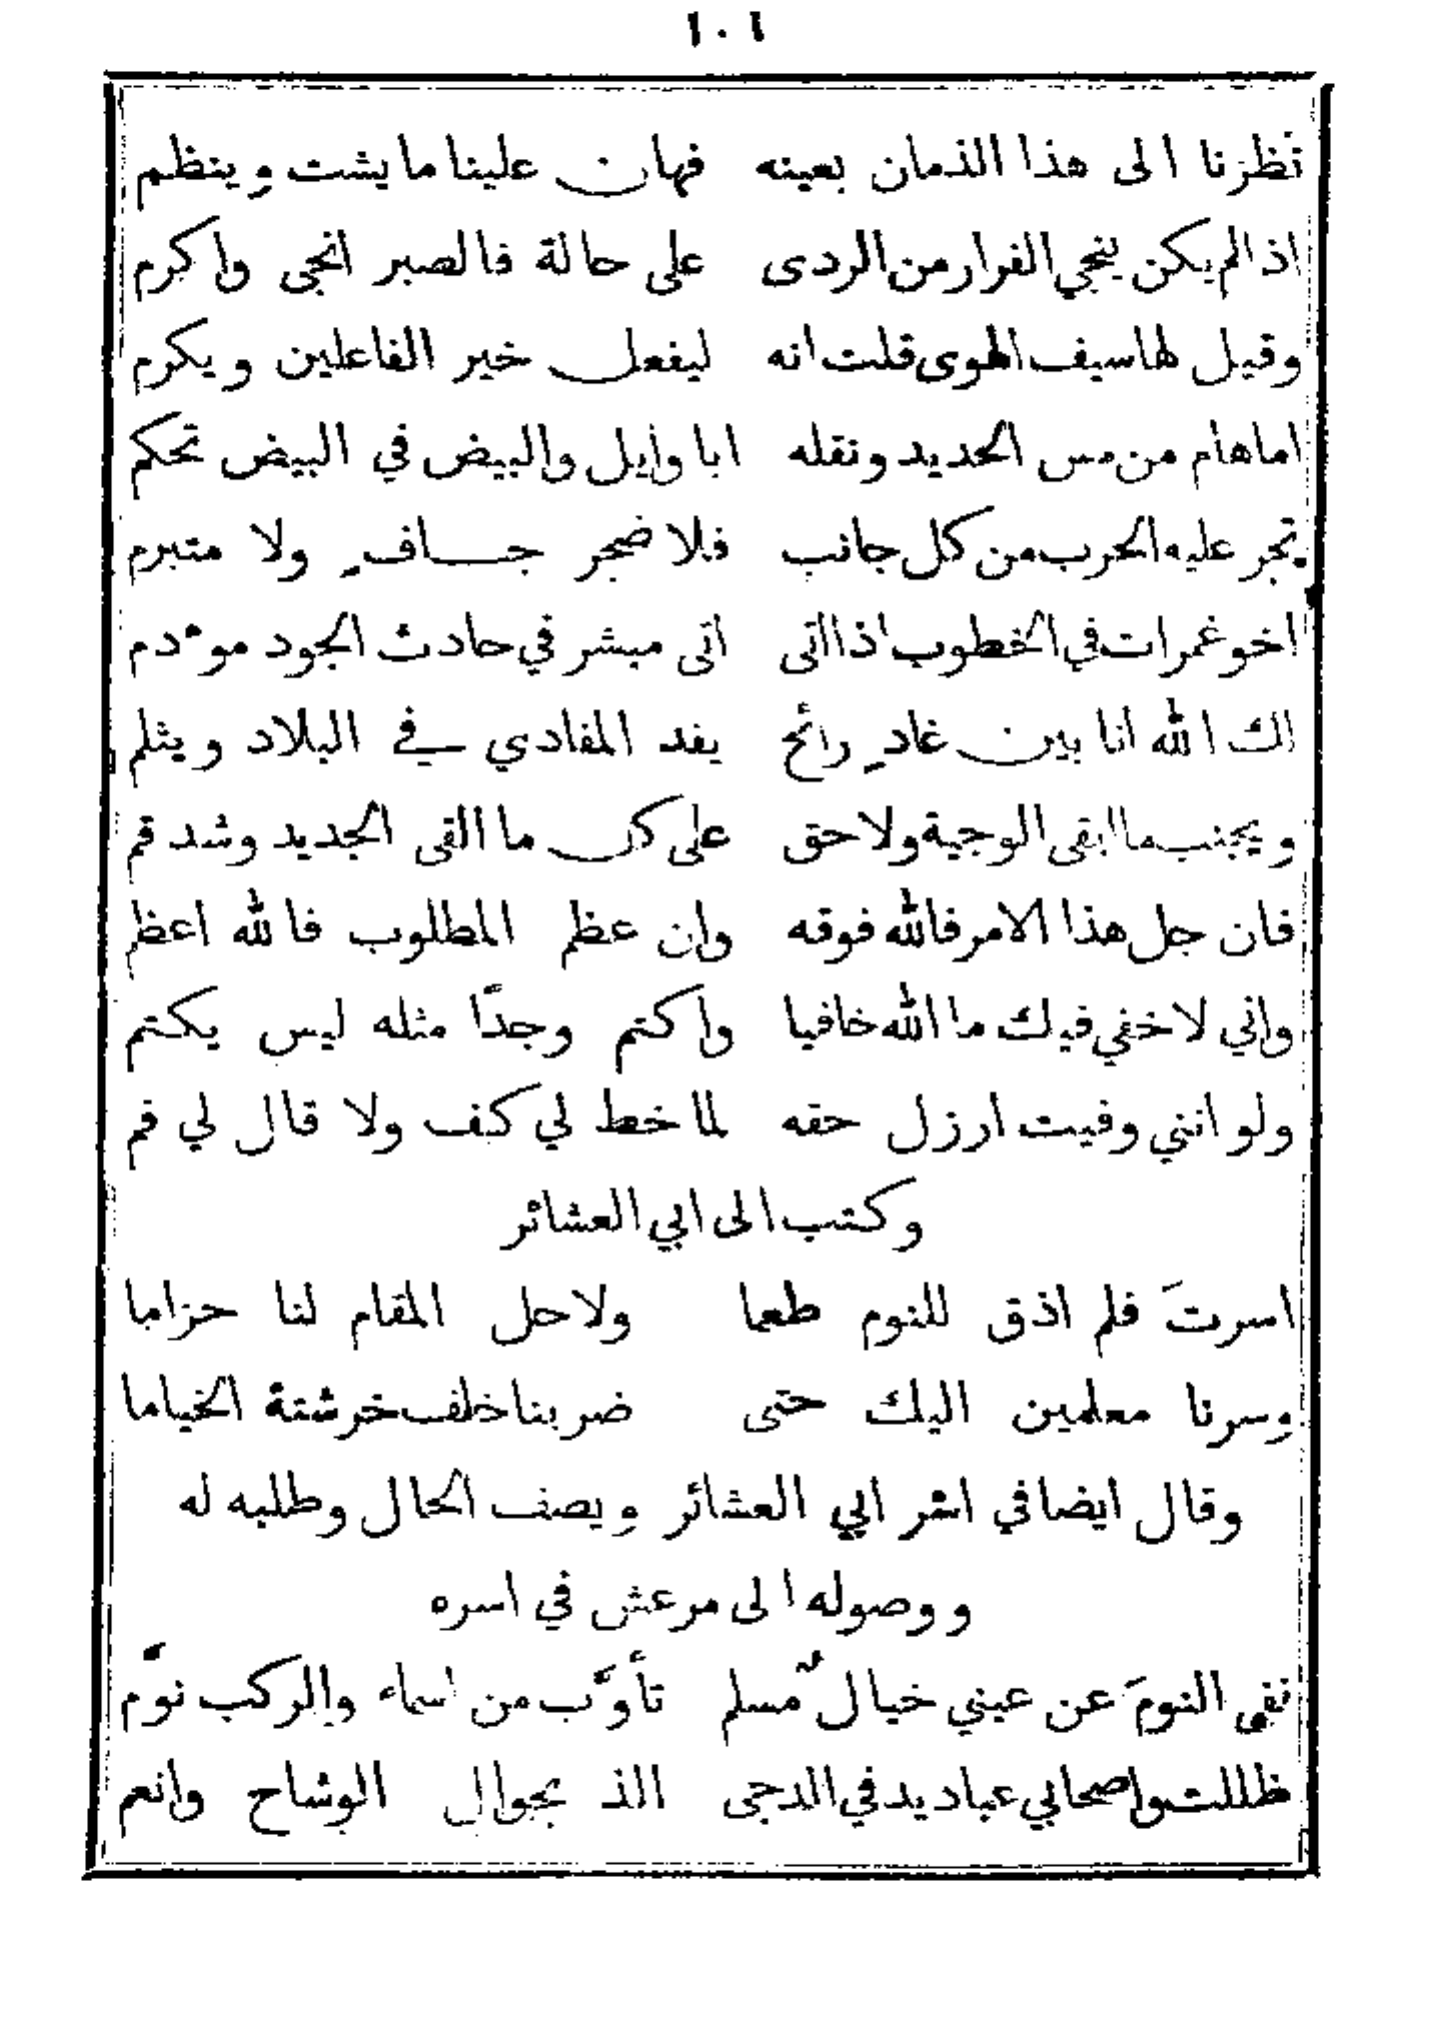 ١٠٦
نظرنا الى هذا الذمان بعينه فهان علينا ما يشت وينظم
اذا لم يكن ينجي الفرار من الردى على حالة فالصبر انجى واكرم
وقيل لها سيف الهوى قلت انه ليفعل خير الفاعلين ويكرم
اما هام من مس الحديد ونقله ابا وايل والبيض في البيض تحكم
تجر عليه الحرب من كل جانب فلا ضجر جاف ولا متبرم
اخو غمرات في الخطوب اذا اتى اتى مبشر في حادث الجود موءدم
لك الله انا بين غادٍ رائح يفد المفادي في البلاد ويثلم
ويجنب ما ابقى الوجية ولاحق على كل ما القى الجديد وشدقم
فان جل هذا الامر فالله فوقه وان عظم المطلوب فالله اعظم
واني لاخفي فيك ما الله خافيا واكتم وجدًا مثله ليس يكتم
ولو انني وفيت ارزل حقه لما خط لي كف ولا قال لي فم
وكتب الى ابي العشائر
اسرتَ فلم اذق للنوم طعما ولا حل المقام لنا حزاما
وسرنا معلمين اليك حتى ضربنا خلف خرشنة الخياما
وقال ايضا في اسر ابي العشائر ويصف الحال وطلبه له
ووصوله الى مرعش في اسره
نفى النومَ عن عيني خيالٌ مسلم تأوَّب من اسماء والركب نوَّم
ظللت واصحابي عباديد في الدجى الذ بجوال الوشاح وانعم